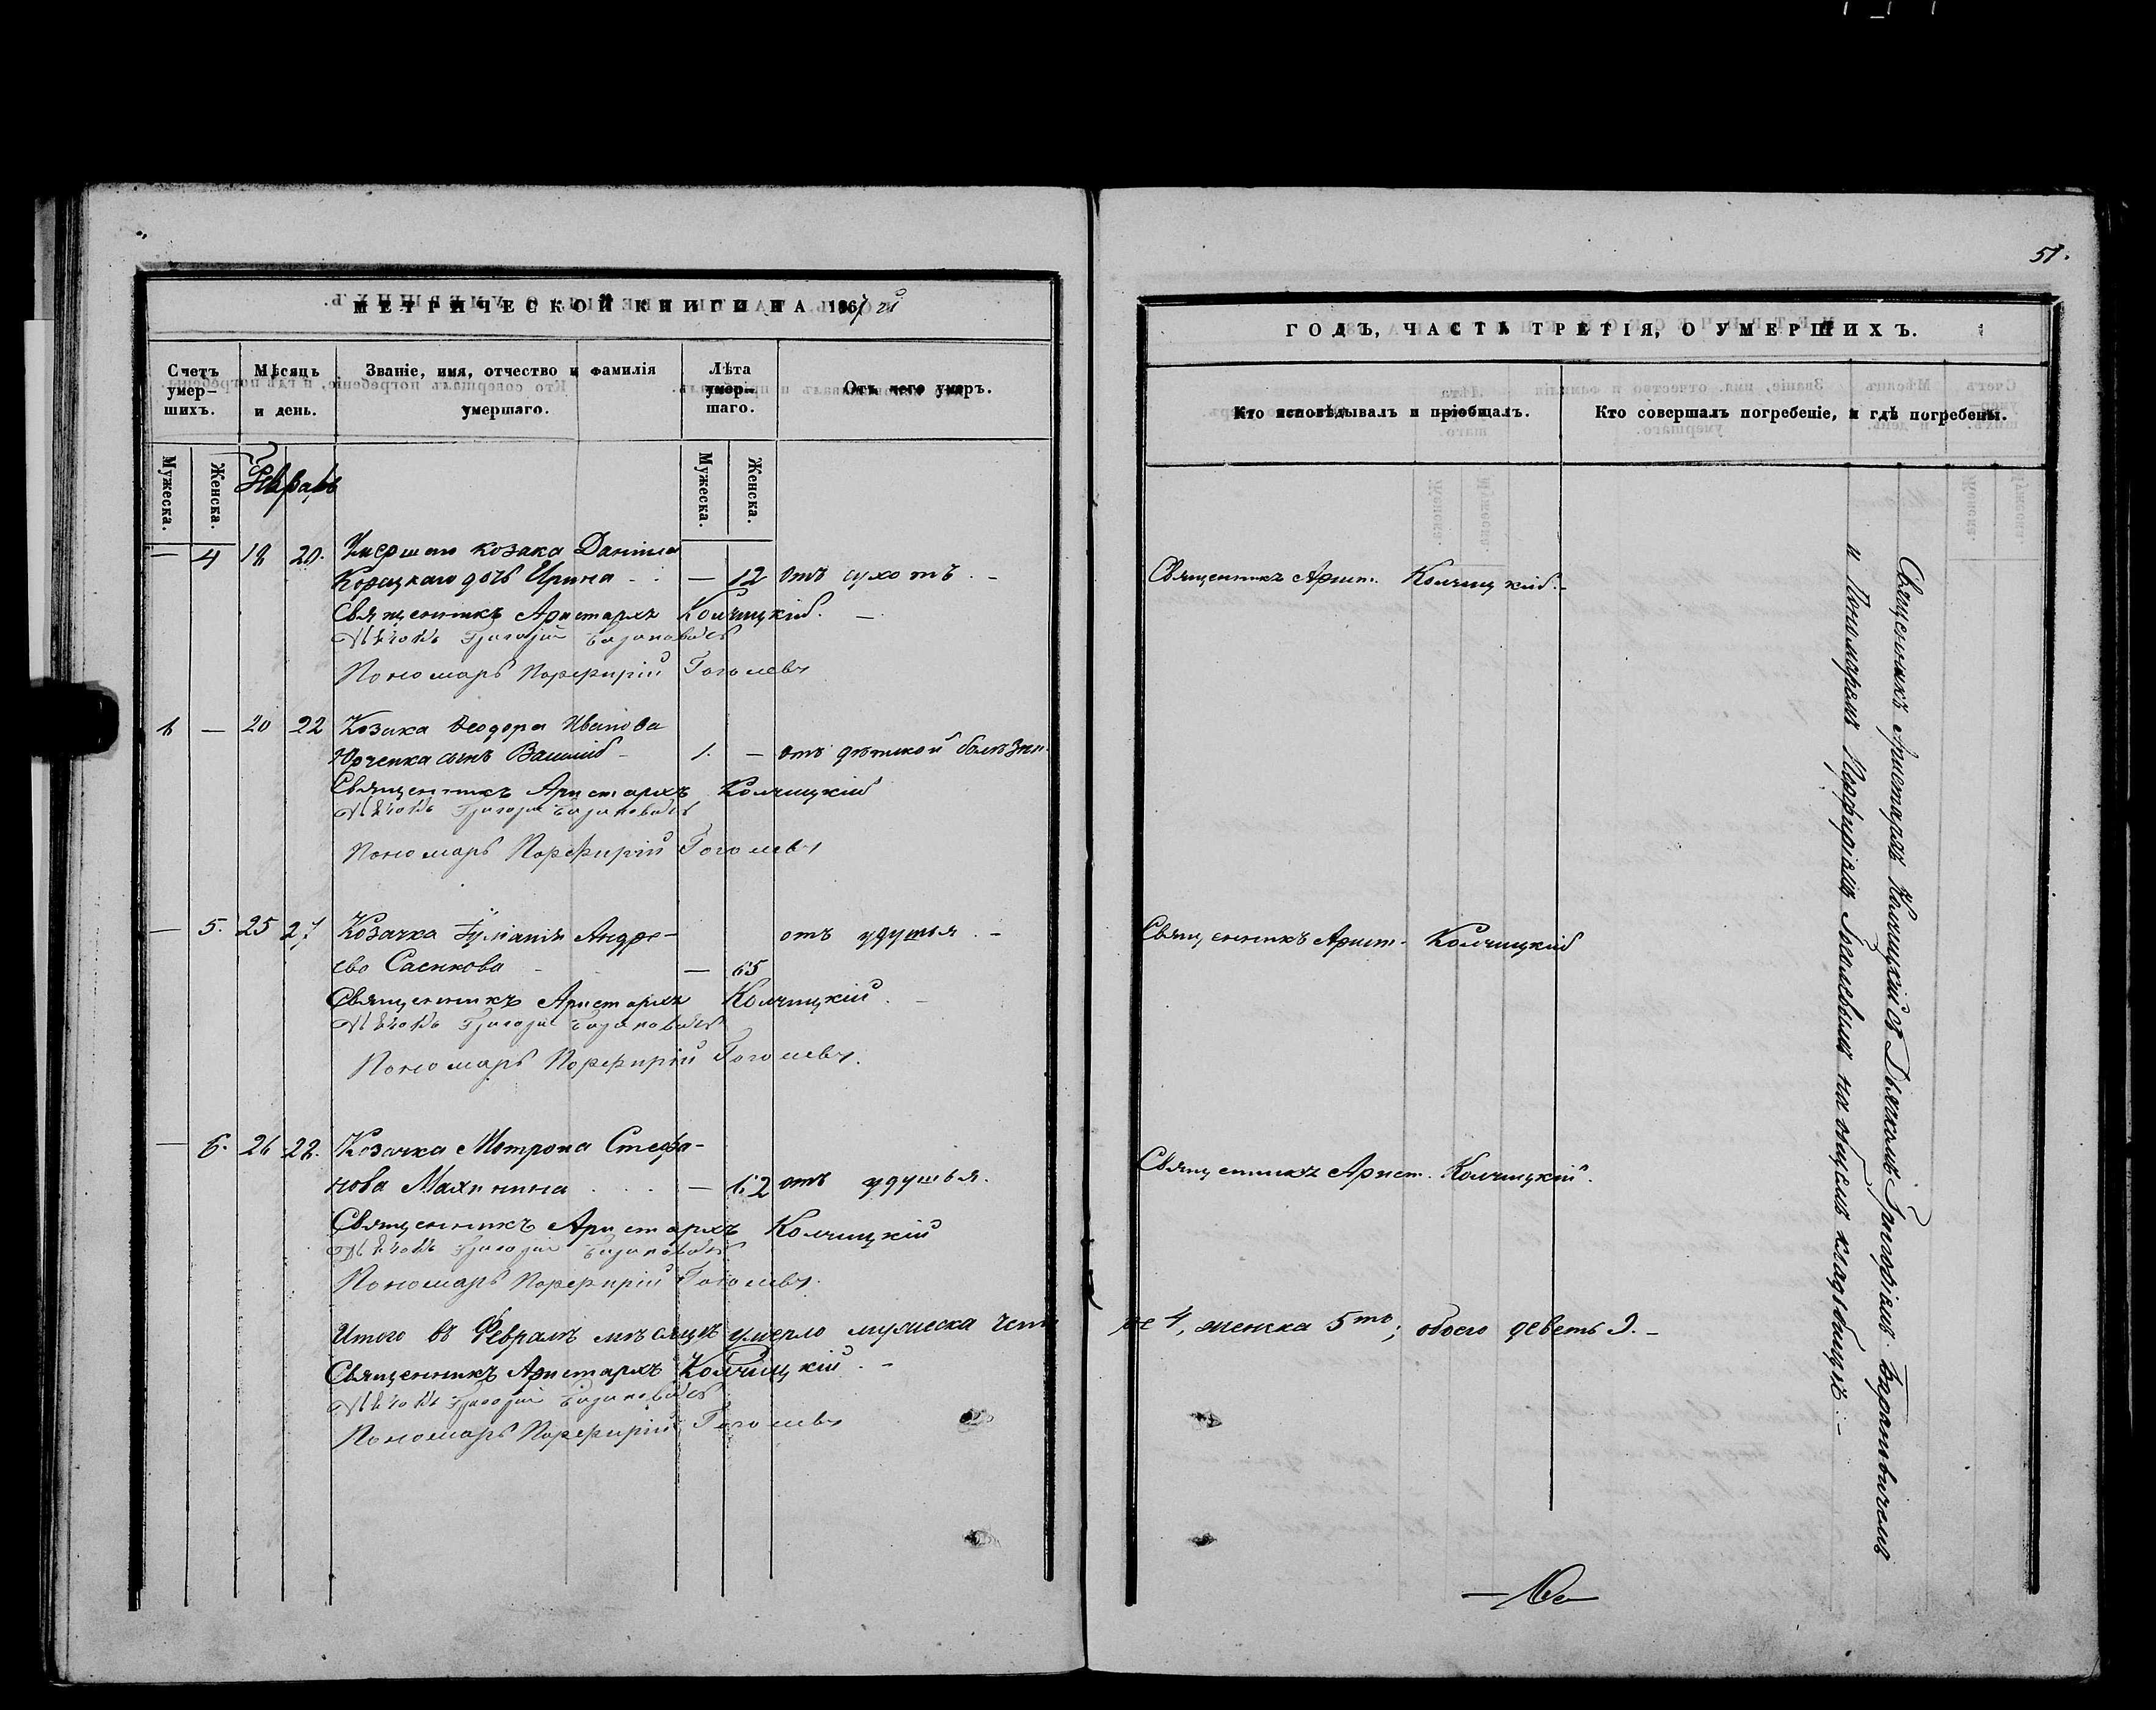 51.
МЕТРИЧЕСКОЙ КНИГИ НА 1867й
Счетъ умер-шихъ.
Мѣсяцъ и день.
Званіе, имя, отчество и фамилія умершаго.
Лѣта умер-шаго.
Отъ чего умеръ.
Мужеска.
Женска.
Февраль
Мужеска.
Женска.
— 4 18 20. Умершаго козака Даніила
дочь Ирина - — 12 отъ сухотъ. -
Священникъ Аристархъ Колчицкій. —
Дьяконъ Григорій
Пономарь Порфирій Гоголевъ
— 20 22 Козака Ѳеодора Иванова
Юрченка сынъ Василій - 1. — отъ дѣтской болѣзни.
Священникъ Аристархъ Колчицкій
Дьяконъ Григорій
Пономарь Порфирій Гоголевъ
— 5. 25 27 Козачка Андре- отъ удушья. -
ева Саенкова - — 65
Священникъ Аристархъ Колчицкій. -
Дьяконъ Григорій
Пономарь Порфирій Гоголевъ.
— 6. 26 28. Козачка Мотрона Стефа-
нова Махинина . . - — 62 отъ удушья.
Священникъ Аристархъ Колчицкій
Дьяконъ Григорій
Пономарь Порфирій Гоголевъ.
Итого въ Февралѣ мѣсяцѣ умерло мужеска четы
Священникъ Аристархъ Колчицкій. -
Дьяконъ Григорій
Пономарь Порфирій Гоголевъ
ГОДЪ, ЧАСТЬ ТРЕТІЯ, О УМЕРШИХЪ.
Кто исповѣдывалъ и пріобщалъ.
Кто совершалъ погребеніе, и гдѣ погребены.
Священникъ Арист. Колчицкій. -
Священникъ Арист. Колчицкій
Священникъ Арист. Колчицкій.
ре 4, женска 5ть; обоего деветь 9. -
Священникъ Аристархъ Колчицкій съ Дьякономъ Григоріемъ
и Пономаремъ Порфиріемъ Гоголевымъ на общемъ кладбищѣ. -